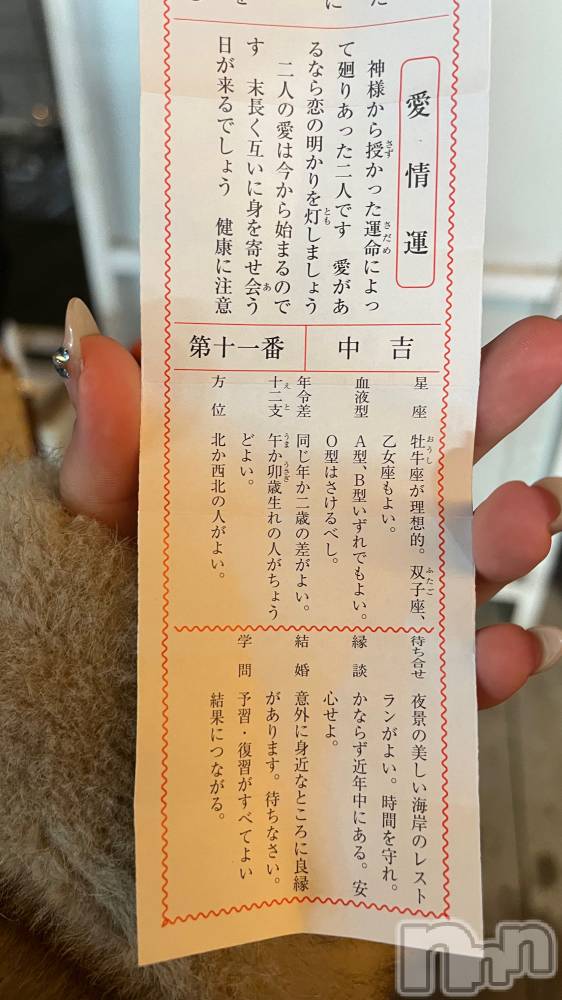 た
に
愛情運
神様から授かった運命によっ
て廻りあった二人です　愛があ
るなら恋の明かりを灯しましょう
二人の愛は今から始まるので
す　末長く互いに身を寄せ会う
日が来るでしょう　健康に注意
さず
さだめ
とも
あ
中吉
第十一番
星座
牡牛座が理想的。双子座、
乙女座もよい。
おうし
ふたご
血液型
A型、B型いずれでもよい。
O型はさけるべし。
年令差
同じ年か二歳の差がよい。
十二支
午か卯歳生れの人がちょう
どよい。
えと
うま
うさぎ
方位
北か西北の人がよい。
待ち合せ
夜景の美しい海岸のレスト
ランがよい。時間を守れ。
縁談
かならず近年中にある。安
心せよ。
結婚
意外に身近なところに良縁
があります。待ちなさい。
学問
予習・復習がすべてよい
結果につながる。
nnn